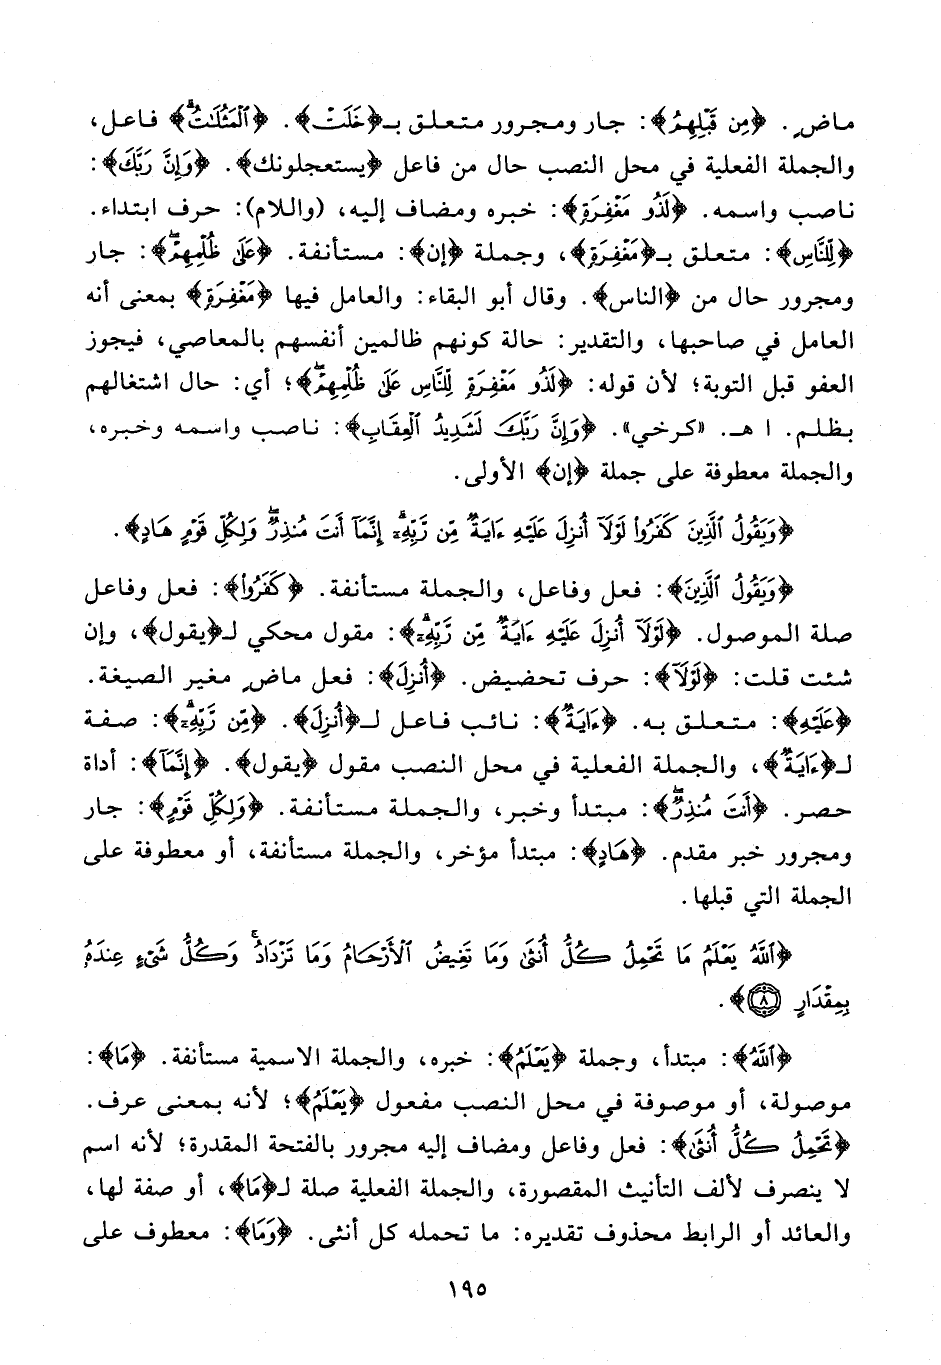 ماضٍ. ﴿مِن قَبْلِهِمُ﴾: جار ومجرور متعلق بـ﴿خَلَتْ﴾. ﴿ٱلْمَثُلَٰتُۗ﴾ فاعل،
والجملة الفعلية في محل النصب حال من فاعل ﴿يستعجلونك﴾. ﴿وَإِنَّ رَبَّكَ﴾:
ناصب واسمه. ﴿لَذُو مَغْفِرَةٍ﴾: خبره ومضاف إليه، (واللام): حرف ابتداء.
﴿لِّلنَّاسِ﴾: متعلق بـ﴿مَغْفِرَةٍ﴾، وجملة ﴿إن﴾: مستأنفة. ﴿عَلَىٰ ظُلْمِهِمْۖ﴾: جار
ومجرور حال من ﴿الناس﴾. وقال أبو البقاء: والعامل فيها ﴿مَغْفِرَةٍ﴾ بمعنى أنه
العامل في صاحبها، والتقدير: حالة كونهم ظالمين أنفسهم بالمعاصي، فيجوز
العفو قبل التوبة؛ لأن قوله: ﴿لَذُو مَغْفِرَةٍ لِّلنَّاسِ عَلَىٰ ظُلْمِهِمْۖ﴾؛ أي: حال اشتغالهم
بظلم. ا هـ. «كرخي». ﴿وَإِنَّ رَبَّكَ لَشَدِيدُ ٱلْعِقَابِ﴾: ناصب واسمه وخبره،
والجملة معطوفة على جملة ﴿إن﴾ الأولى.
﴿وَيَقُولُ ٱلَّذِينَ كَفَرُوا۟ لَوْلَآ أُنزِلَ عَلَيْهِ ءَايَةٌ مِّن رَّبِّهِۦۗ إِنَّمَآ أَنتَ مُنذِرٌۖ وَلِكُلِّ قَوْمٍ هَادٍ﴾.
﴿وَيَقُولُ ٱلَّذِينَ﴾: فعل وفاعل، والجملة مستأنفة. ﴿كَفَرُوا۟﴾: فعل وفاعل
صلة الموصول. ﴿لَوْلَآ أُنزِلَ عَلَيْهِ ءَايَةٌ مِّن رَّبِّهِۦۗ﴾: مقول محكي لـ﴿يقول﴾، وإن
شئت قلت: ﴿لَوْلَآ﴾: حرف تحضيض. ﴿أُنزِلَ﴾: فعل ماضٍ مغير الصيغة.
﴿عَلَيْهِ﴾: متعلق به. ﴿ءَايَةٌ﴾: نائب فاعل لـ﴿أُنزِلَ﴾. ﴿مِّن رَّبِّهِۦۗ﴾: صفة
لـ﴿ءَايَةٌ﴾، والجملة الفعلية في محل النصب مقول ﴿يقول﴾. ﴿إِنَّمَآ﴾: أداة
حصر. ﴿أَنتَ مُنذِرٌۖ﴾: مبتدأ وخبر، والجملة مستأنفة. ﴿وَلِكُلِّ قَوْمٍ﴾: جار
ومجرور خبر مقدم. ﴿هَادٍ﴾: مبتدأ مؤخر، والجملة مستأنفة، أو معطوفة على
الجملة التي قبلها.
﴿ٱللَّهُ يَعْلَمُ مَا تَحْمِلُ كُلُّ أُنثَىٰ وَمَا تَغِيضُ ٱلْأَرْحَامُ وَمَا تَزْدَادُۚ وَكُلُّ شَىْءٍ عِندَهُ
بِمِقْدَارٍ ٨﴾.
﴿ٱللَّهُ﴾: مبتدأ، وجملة ﴿يَعْلَمُ﴾: خبره، والجملة الاسمية مستأنفة. ﴿مَا﴾:
موصولة، أو موصوفة في محل النصب مفعول ﴿يَعْلَمُ﴾؛ لأنه بمعنى عرف.
﴿تَحْمِلُ كُلُّ أُنثَىٰ﴾: فعل وفاعل ومضاف إليه مجرور بالفتحة المقدرة؛ لأنه اسم
لا ينصرف لألف التأنيث المقصورة، والجملة الفعلية صلة لـ﴿مَا﴾، أو صفة لها،
والعائد أو الرابط محذوف تقديره: ما تحمله كل أنثى. ﴿وَمَا﴾: معطوف على
١٩٥